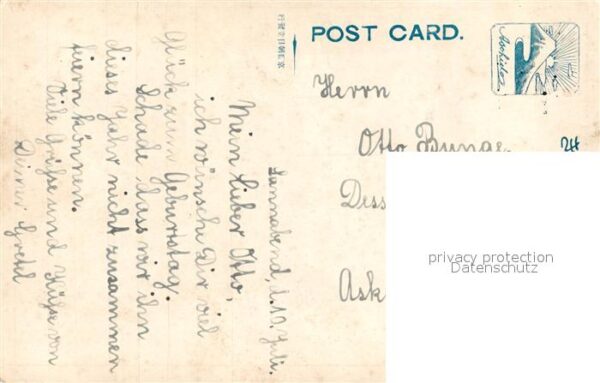 POST CARD.
Herrn
Otto Bunge
Dess
Ask
24
privacy protection
Datenschutz
Sonnabend, d. 10. Juli.
Mein lieber Otto,
ich wünsche Dir viel
Glück zum Geburtstag.
Schade dass wir ihn
dises Jahr nicht zusammen
feiern können.
Viele Grüße und Küße von
Deiner Gretel